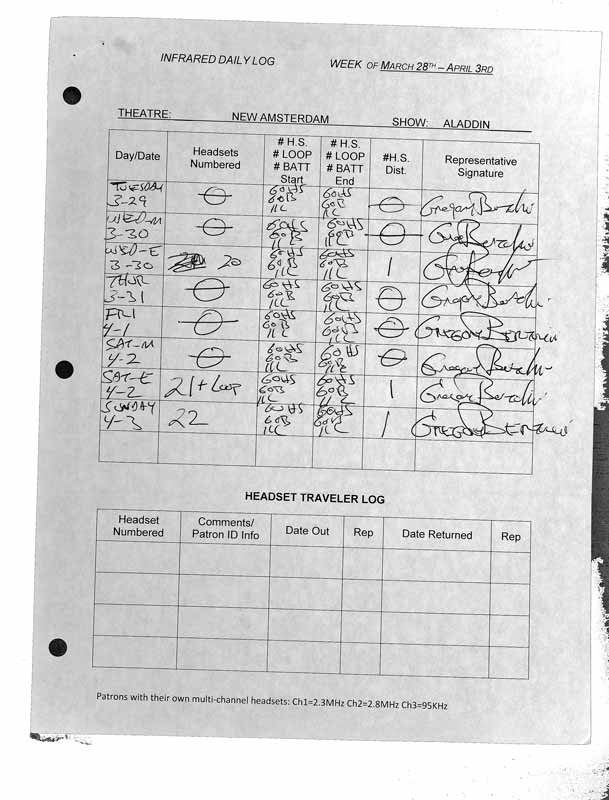 INFRARED DAILY LOG WEEK OF MARCH 28TH – APRIL 3RD
THEATRE: NEW AMSTERDAM SHOW: ALADDIN
Day/Date Headsets Numbered # H.S. # LOOP # BATT Start # H.S. # LOOP # BATT End #H.S. Dist. Representative Signature
TUESDAY 3-29 60HS 60B 11L 60HS 60B 11L Gregory
WED-M 3-30 60HS 60B 11L 60HS 60B 11L
WED-E 3-30 20 60HS 60B 11L 60HS 60B 11L 1
THUR 3-31 60HS 60B 11L 60HS 60B 11L Gregory
FRI 4-1 60HS 60B 11L 60HS 60B 11L GREGORY
SAT-M 4-2 60HS 60B 11L 60HS 60B 11L Gregory
SAT-E 4-2 21 + LOOP 60HS 60B 11L 60HS 60B 11L 1 Gregory
SUNDAY 4-3 22 60HS 60B 11L 60HS 60B 11L 1 GREGORY
HEADSET TRAVELER LOG
Headset Numbered Comments/ Patron ID Info Date Out Rep Date Returned Rep
Patrons with their own multi-channel headsets: Ch1=2.3MHz Ch2=2.8MHz Ch3=95KHz